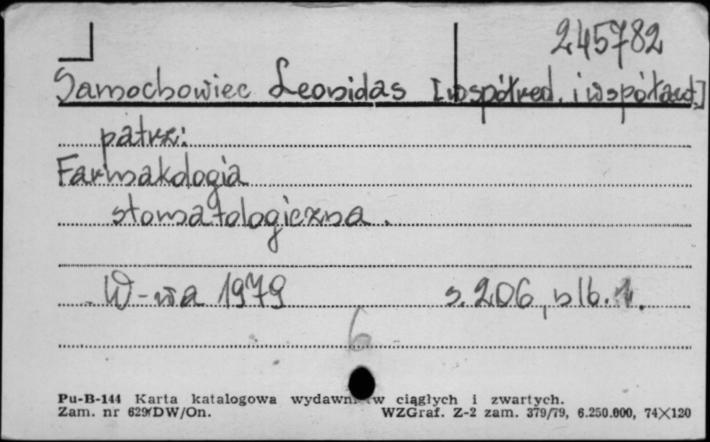 245782
Samochowiec Leonidas [współred. i współaut.]
patrz:
Farmakologia
stomatologiczna.
W-wa 1979 s. 206, nlb. 1.
6
Pu-B-144 Karta katalogowa wydawn w ciągłych i zwartych.
Zam. nr 629/DW/On. WZGraf. Z-2 zam. 379/79, 6.250.000, 74×120